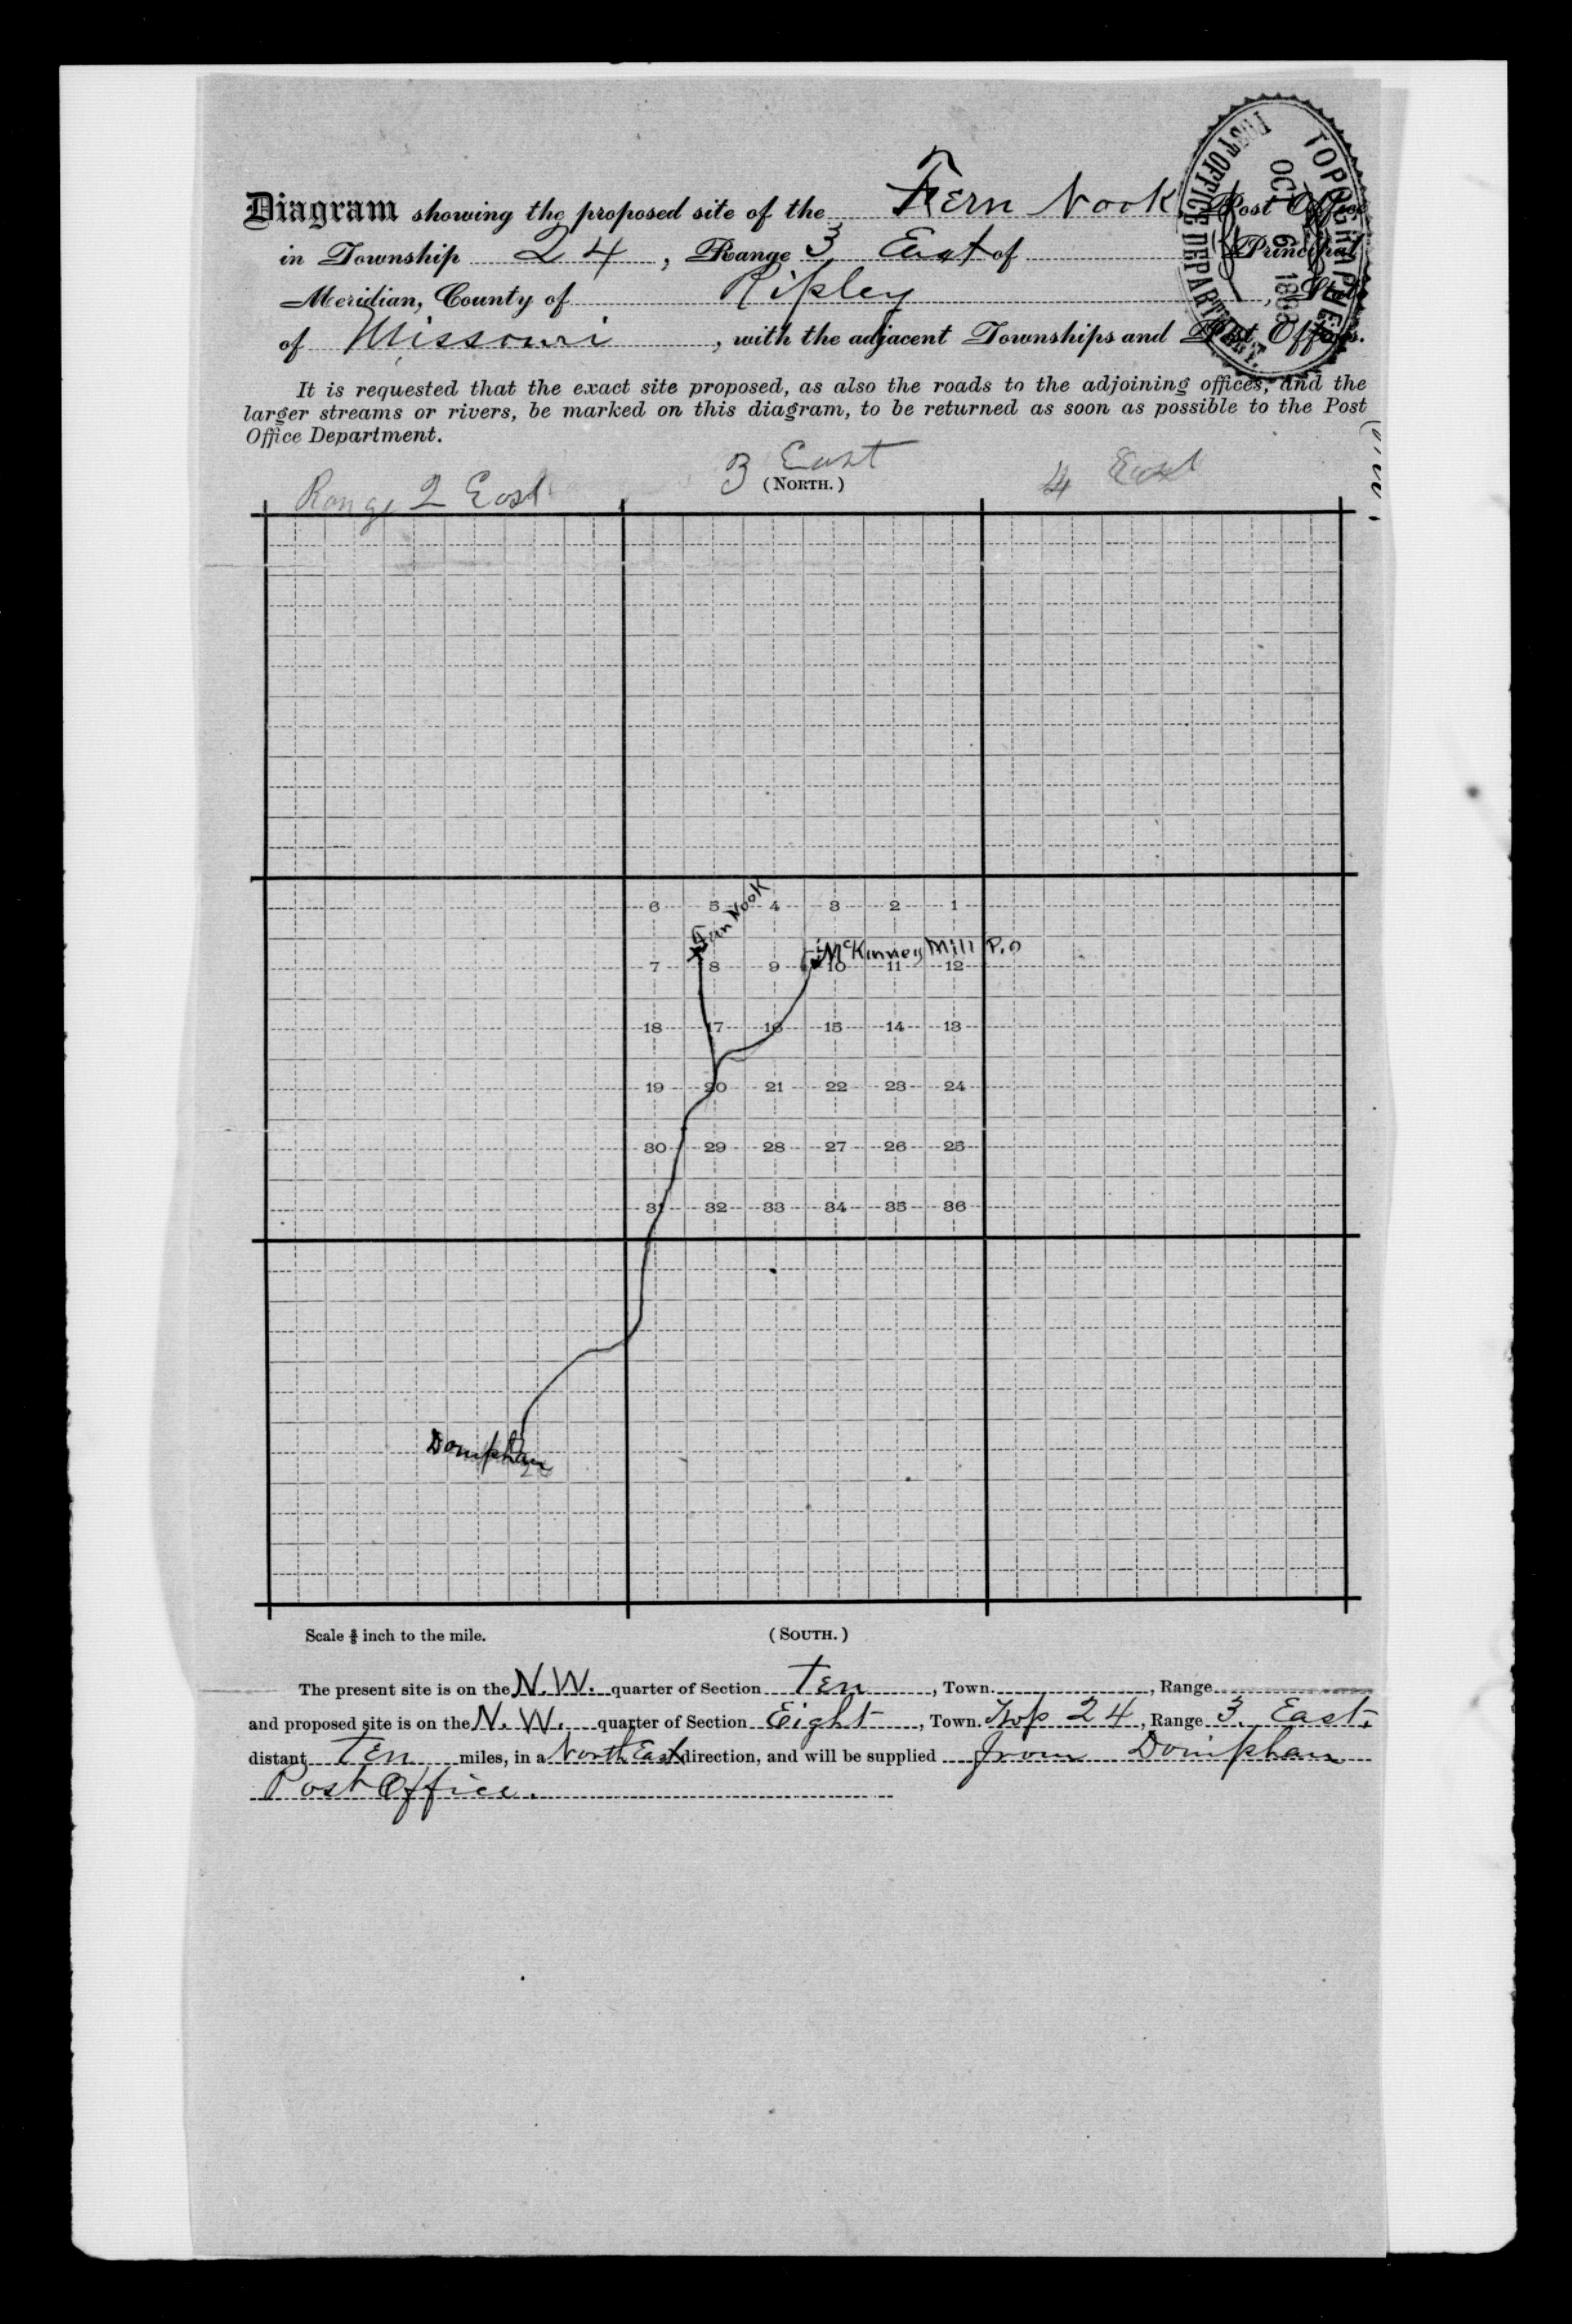 Diagram showing the proposed site of the Fern Nook Post Office
in Township 24, Range 3 East of Principal
Meridian, County of Ripley, State
of Missouri, with the adjacent Townships and Post Offices.
TOPOGRAPHER
OCT 6 1888
POST OFFICE DEPARTMENT
It is requested that the exact site proposed, as also the roads to the adjoining offices, and the
larger streams or rivers, be marked on this diagram, to be returned as soon as possible to the Post
Office Department.
Range 2 East 3 East 4 East
(NORTH.)
6 5 4 3 2 1
Fern Nook
McKinney Mill P.O
7 8 9 10 11 12
18 17 16 15 14 13
19 20 21 22 23 24
30 29 28 27 26 25
31 32 33 34 35 36
Doniphan
Scale ⅜ inch to the mile.
(SOUTH.)
The present site is on the N.W. quarter of Section Ten, Town. , Range
and proposed site is on the N.W. quarter of Section Eight, Town. Twp 24, Range 3. East.
distant Ten miles, in a North East direction, and will be supplied from Doniphan
Post Office.